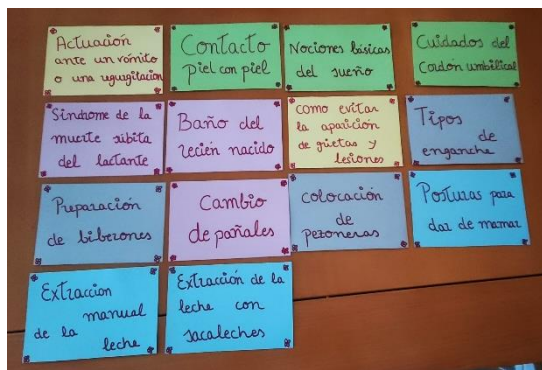 Actuación
ante un vómito
o una regurgitación
Contacto
piel con piel
Nociones básicas
del sueño
Cuidados del
Cordón umbilical
Síndrome de la
muerte súbita
del lactante
Baño del
recién nacido
como evitar
la aparición
de grietas y
lesiones
Tipos
de
enganche
Preparación
de biberones
Cambio
de pañales
colocación
de
Pezoneras
Posturas para
dar de mamar
Extraccion
manual
de la
leche
Extracción de la
leche con
sacaleches